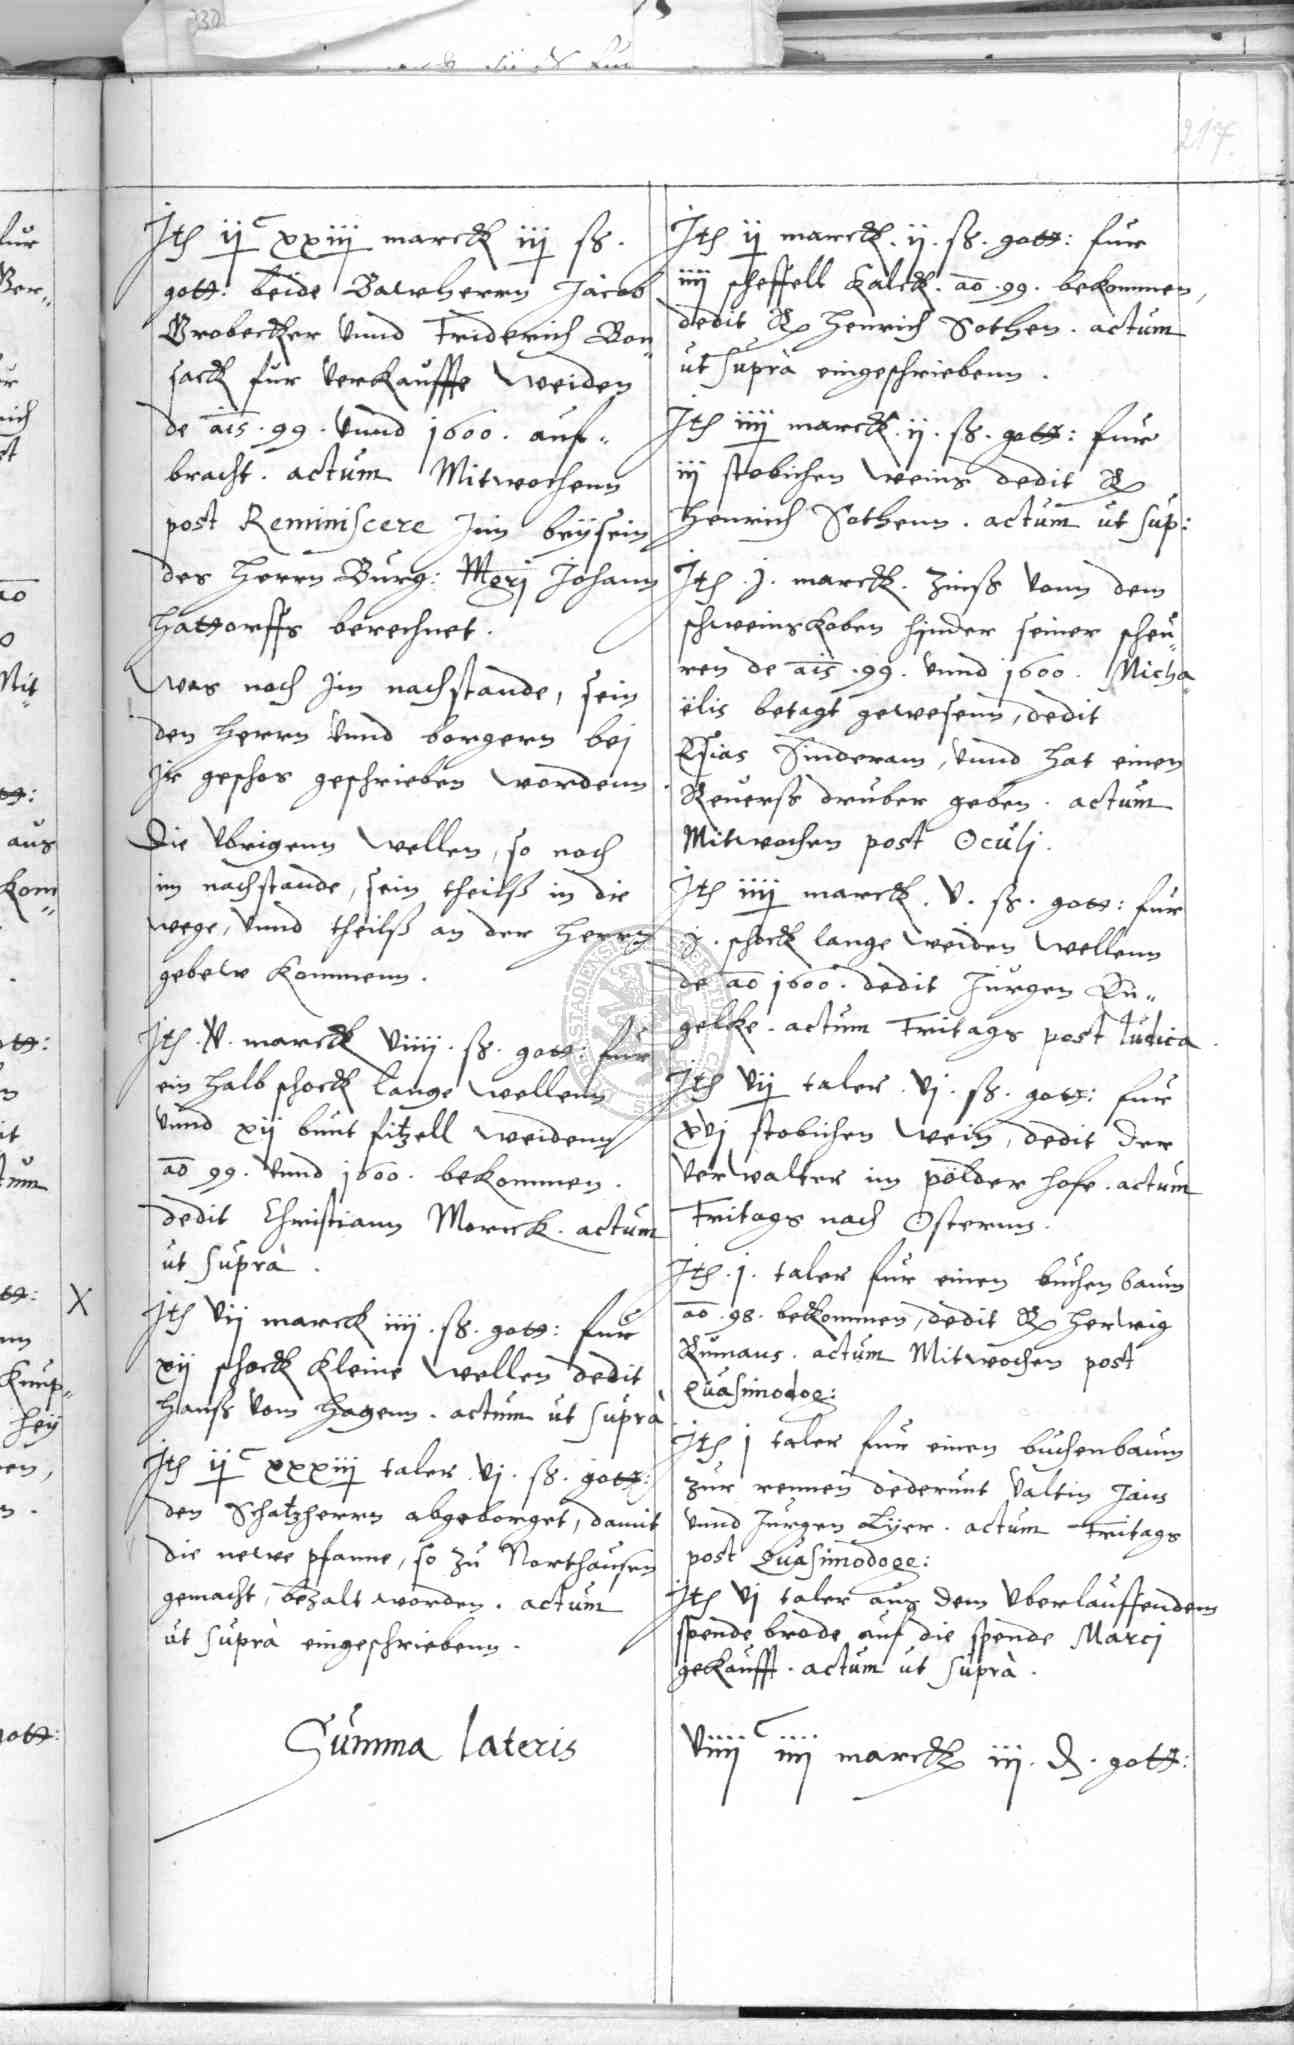 217.
Jtem ijC xxiij marck iij ß.
gott: beide Bawherrn Jacob
Brobecker vnnd Friderich Bon„
sack fur verkauffte weiden
de ais. 99. vnnd 1600. auf„
bracht. actum Mitwochenn
post Reminiscere Jnn beysein
des Herrn Burg: Mgri Johann
Hattorffs berechnet.
Was noch Jm nachstande, sein
den Herrn vnnd borgern bej
Jr geschos geschrieben wordenn
Die vbrigenn wellen, so noch
im nachstande, sein theilß in die
wege, vnnd theilß an der Herrn
gebew kommenn.
Jtem V. marck viiij. ß. gott: fur
ein halb schock lange wellenn
vnnd xij bunt fitzell weidenn
ao 99. vnnd 1600. bekommen.
dedit Christiann Morick. actum
ut suprà.
X
Jtem vij marck iiij. ß. gott: fur
xij schock kleine wellen dedit
Hanß vom Hagenn. actum ut suprà
Jtem ijC xxxiij taler vj. ß. gott:
den Schatzherrn abgeborget, damit
die newe pfanne, so zu Northausen
gemacht, bezalt worden. actum
ut suprà eingeschriebenn.
Summa lateris
Jtem ij marck. ij. ß. gott: fur
iiij scheffell kalck. ao. 99. bekommen,
dedit Henrich Sothen. actum
ut suprà eingeschriebenn.
Jtem iiij marck. ij. ß. gott: fur
iij stobichen weins dedit
Henrich Sothenn. actum ut sup:
Jtem. j. marck. zinß vonn dem
schweinskoben hinder seiner scheu„
ren de ais. 99. vnnd 1600. Micha„
ëlis betagt gewesenn, dedit
Esias Sinderam, vnnd hat einen
Reuerß druber geben. actum
Mitwochen post Oculj.
Jtem iiij marck. v. ß. gott: fur
j. schock lange weiden wellenn
de ao 1600. dedit Jurgen Ku„
gelke. actum Fritags post Iudica.
Jtem vij taler. vj. ß. gott: fur
xvj stobichen wein, dedit der
verwalter im pölder hofe. actum
Fritags nach Osternn.
Jtem. j. taler fur einen buchen baum
ao. 98. bekommen, dedit Herwig
Rumans. actum Mitwochen post
Quasimodog:
Jtem j taler fur einen buchenbaum
zur rennen dederunt Valtin Jans
vnnd Jurgen Lyer. actum Fritags
post Quasimodoge:
Jtem vj taler aus dem vberlauffendem
spende brode auf die spende Marcj
gekaufft. actum ut suprà.
viiijC iiij marck iij. d. gott: